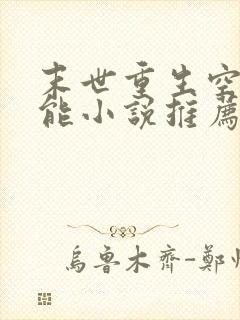 末世重生空
能小說推薦
烏魯木齊-鄭州